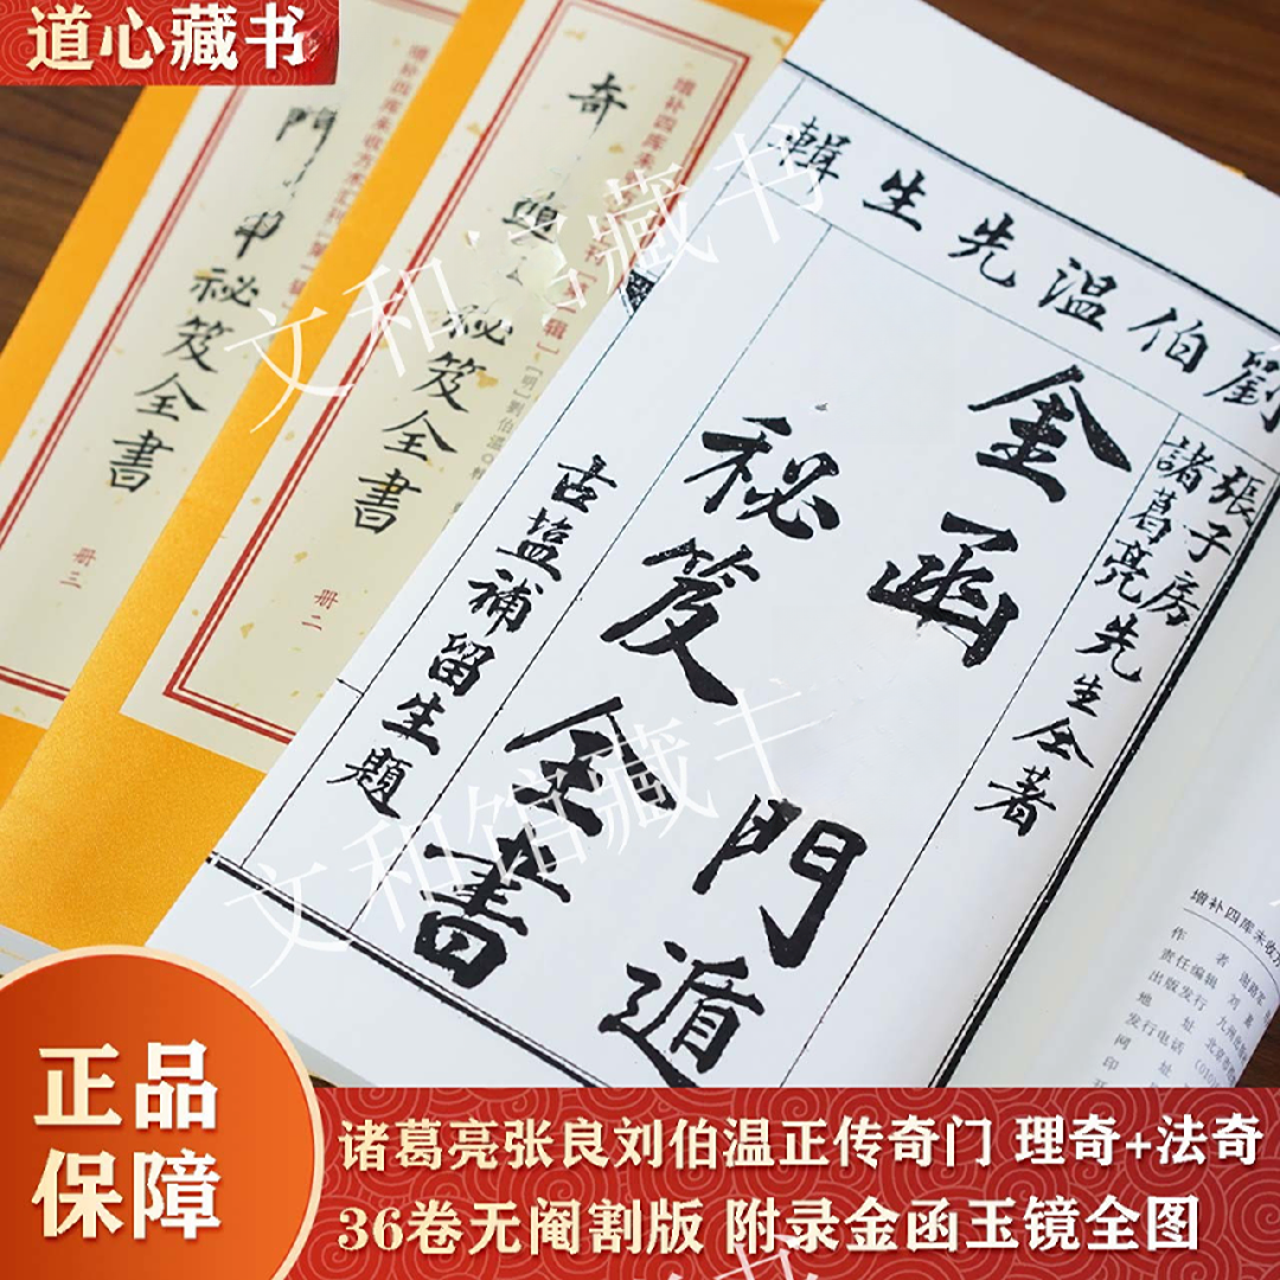 道心藏书
增补四库未收方术汇刊〔第一辑〕
門 甲秘笈全書
册三
增补四库未
刊〔第一辑〕
〔明〕劉伯溫○輯
奇
秘笈全書
册二
劉伯溫先生輯
張子房
諸葛亮先生仝著
金函
門遁
秘笈全書
古盐補留生題
增补四库未收方
作 者
责任编辑 刘
出版发行 九州出版
地 址 北京市西
发行电话 (010)
网 址
印
文和 藏书
文和馆藏
正品
保障
诸葛亮张良刘伯温正传奇门 理奇+法奇
36卷无阉割版 附录金函玉镜全图